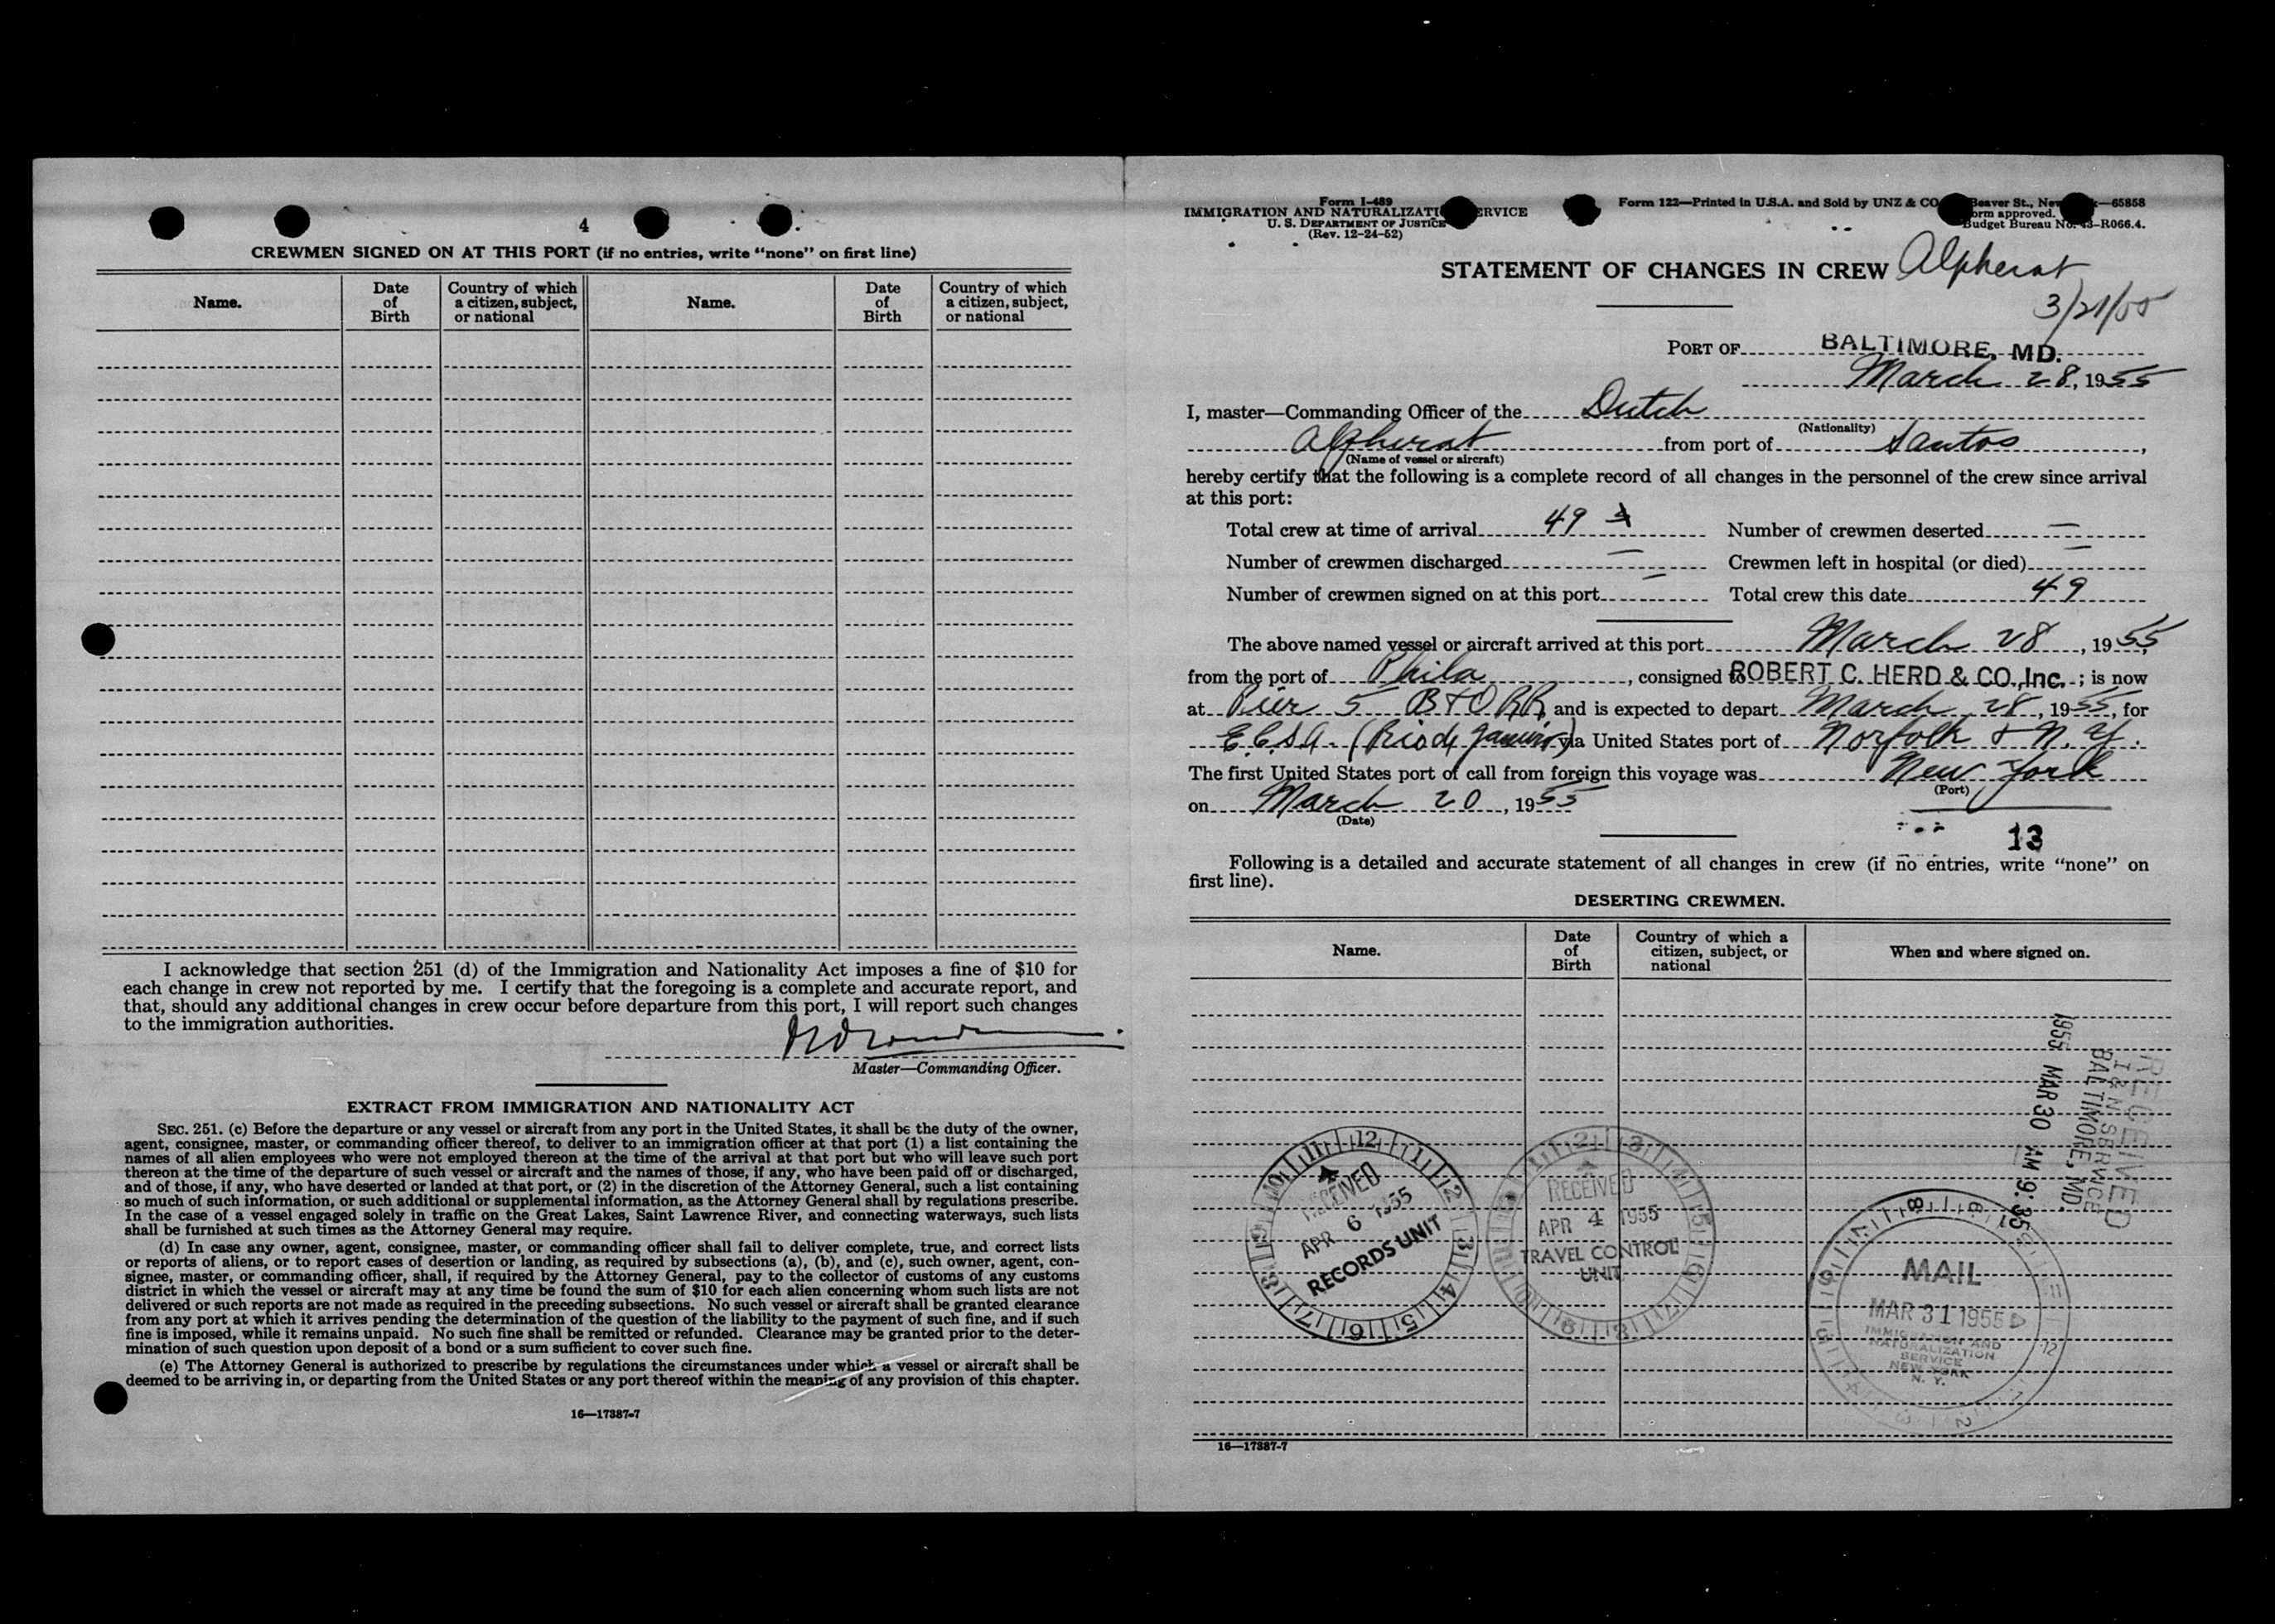 4
CREWMEN SIGNED ON AT THIS PORT (if no entries, write “none” on first line)
Name. Date of Birth Country of which a citizen, subject, or national Name. Date of Birth Country of which a citizen, subject, or national
I acknowledge that section 251 (d) of the Immigration and Nationality Act imposes a fine of $10 for
each change in crew not reported by me. I certify that the foregoing is a complete and accurate report, and
that, should any additional changes in crew occur before departure from this port, I will report such changes
to the immigration authorities.
Master—Commanding Officer.
EXTRACT FROM IMMIGRATION AND NATIONALITY ACT
SEC. 251. (c) Before the departure or any vessel or aircraft from any port in the United States, it shall be the duty of the owner,
agent, consignee, master, or commanding officer thereof, to deliver to an immigration officer at that port (1) a list containing the
names of all alien employees who were not employed thereon at the time of the arrival at that port but who will leave such port
thereon at the time of the departure of such vessel or aircraft and the names of those, if any, who have been paid off or discharged,
and of those, if any, who have deserted or landed at that port, or (2) in the discretion of the Attorney General, such a list containing
so much of such information, or such additional or supplemental information, as the Attorney General shall by regulations prescribe.
In the case of a vessel engaged solely in traffic on the Great Lakes, Saint Lawrence River, and connecting waterways, such lists
shall be furnished at such times as the Attorney General may require.
(d) In case any owner, agent, consignee, master, or commanding officer shall fail to deliver complete, true, and correct lists
or reports of aliens, or to report cases of desertion or landing, as required by subsections (a), (b), and (c), such owner, agent, con-
signee, master, or commanding officer, shall, if required by the Attorney General, pay to the collector of customs of any customs
district in which the vessel or aircraft may at any time be found the sum of $10 for each alien concerning whom such lists are not
delivered or such reports are not made as required in the preceding subsections. No such vessel or aircraft shall be granted clearance
from any port at which it arrives pending the determination of the question of the liability to the payment of such fine, and if such
fine is imposed, while it remains unpaid. No such fine shall be remitted or refunded. Clearance may be granted prior to the deter-
mination of such question upon deposit of a bond or a sum sufficient to cover such fine.
(e) The Attorney General is authorized to prescribe by regulations the circumstances under which a vessel or aircraft shall be
deemed to be arriving in, or departing from the United States or any port thereof within the meaning of any provision of this chapter.
16—17387-7
Form I-489
IMMIGRATION AND NATURALIZATI RVICE
U. S. DEPARTMENT OF JUSTICE
(Rev. 12-24-52)
Form 122—Printed in U.S.A. and Sold by UNZ & CO Beaver St., New —65858
orm approved.
Budget Bureau No. 43-R066.4.
STATEMENT OF CHANGES IN CREW Alpherat
3/21/55
PORT OF BALTIMORE, MD.
March 28, 1955
I, master—Commanding Officer of the Dutch
(Nationality)
Alpherat from port of Santos,
(Name of vessel or aircraft)
hereby certify that the following is a complete record of all changes in the personnel of the crew since arrival
at this port:
Total crew at time of arrival 49 Number of crewmen deserted —
Number of crewmen discharged — Crewmen left in hospital (or died) —
Number of crewmen signed on at this port — Total crew this date 49
The above named vessel or aircraft arrived at this port March 28, 1955,
from the port of Phila, consigned to ROBERT C. HERD & CO., Inc.; is now
at Pier 5 B&O RR and is expected to depart March 28, 1955, for
E.C.S.A. (Rio de Janeiro) via United States port of Norfolk & N.Y.
The first United States port of call from foreign this voyage was New York
(Port)
on March 20, 1955
(Date)
13
Following is a detailed and accurate statement of all changes in crew (if no entries, write “none” on
first line).
DESERTING CREWMEN.
Name. Date of Birth Country of which a citizen, subject, or national When and where signed on.
RECEIVED
I & N SERVICE
BALTIMORE, MD.
1955 MAR 30 AM 9:35
RECEIVED
APR 6 1955
RECORDS UNIT
RECEIVED
APR 4 1955
TRAVEL CONTROL
UNIT
MAIL
MAR 31 1955
IMMIGRATION AND
NATURALIZATION
SERVICE
NEW YORK
N. Y.
16—17387-7